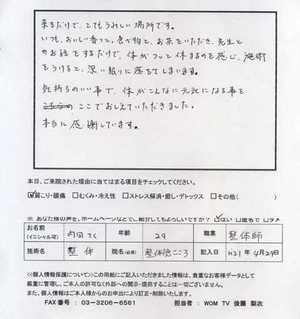 来るだけで、とてもうれしい場所です。
いつも、おいしい香りと、食べ物と、お茶をいただき、先生と
のお話をするだけで、体がフッと休まるのを感じ、施術
をうけると、深い眠りに落ちてしまいます。
気持ちのいい事で、体がこんなに元気になる事を
ここでおしえていただきました。
本当に感謝しています。
本日、ご来院された理由に当てはまる項目をチェックしてください。
☑肩こり・腰痛 □むくみ・冷え性 □ストレス解消・癒し・デトックス □その他( )
※ あなた様の声を、ホームページなどでご紹介してもよろしいですか? はい □匿名で □ダメ
お名前 (イニシャル可) 内田 T.C 年齢 29 職業 整体師
施術名 整体 院名(必須) 整体院こころ H21年4月29日
※<個人情報保護について>この用紙にご記入いただきました情報は、貴重なお客様データとして
厳重に管理し、ご本人の許可なく外部への開示・提供することは一切ございません。
また、個人情報はご本人様からのお申出により訂正・削除いたします。
FAX番号 : 03-3206-6581 担当者 : WOM TV 後藤 梨衣